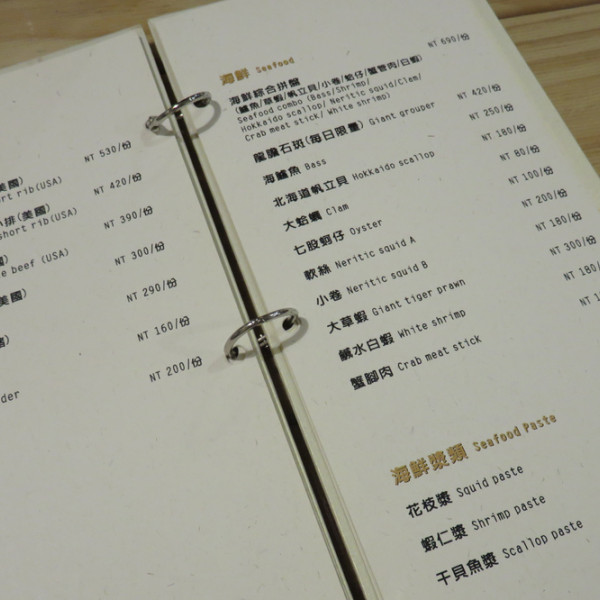 美國)
short rib(USA) NT 530/份
小排(美國)
short rib(USA) NT 420/份
國)
e beef (USA) NT 390/份
美國) NT 300/份
NT 290/份
NT 160/份
der NT 200/份
海鮮 Seafood
海鮮綜合拼盤 NT 690/份
(鱸魚/草蝦/帆立貝/小卷/蛤仔/蟹管肉/白蝦)
Seafood combo (Bass/Shrimp/
Hokkaido scallop/ Neritic squid/Clam/
Crab meat stick/ White shrimp)
龍膽石斑(每日限量) Giant grouper NT 420/份
海鱸魚 Bass NT 250/份
北海道帆立貝 Hokkaido scallop NT 180/份
大蛤蠣 Clam NT 80/份
七股蚵仔 Oyster NT 100/份
軟絲 Neritic squid A NT 200/份
小卷 Neritic squid B NT 180/份
大草蝦 Giant tiger prawn NT 300/份
鹹水白蝦 White shrimp NT 180/
蟹腳肉 Crab meat stick NT
海鮮漿類 Seafood Paste
花枝漿 Squid paste
蝦仁漿 Shrimp paste
干貝魚漿 Scallop paste